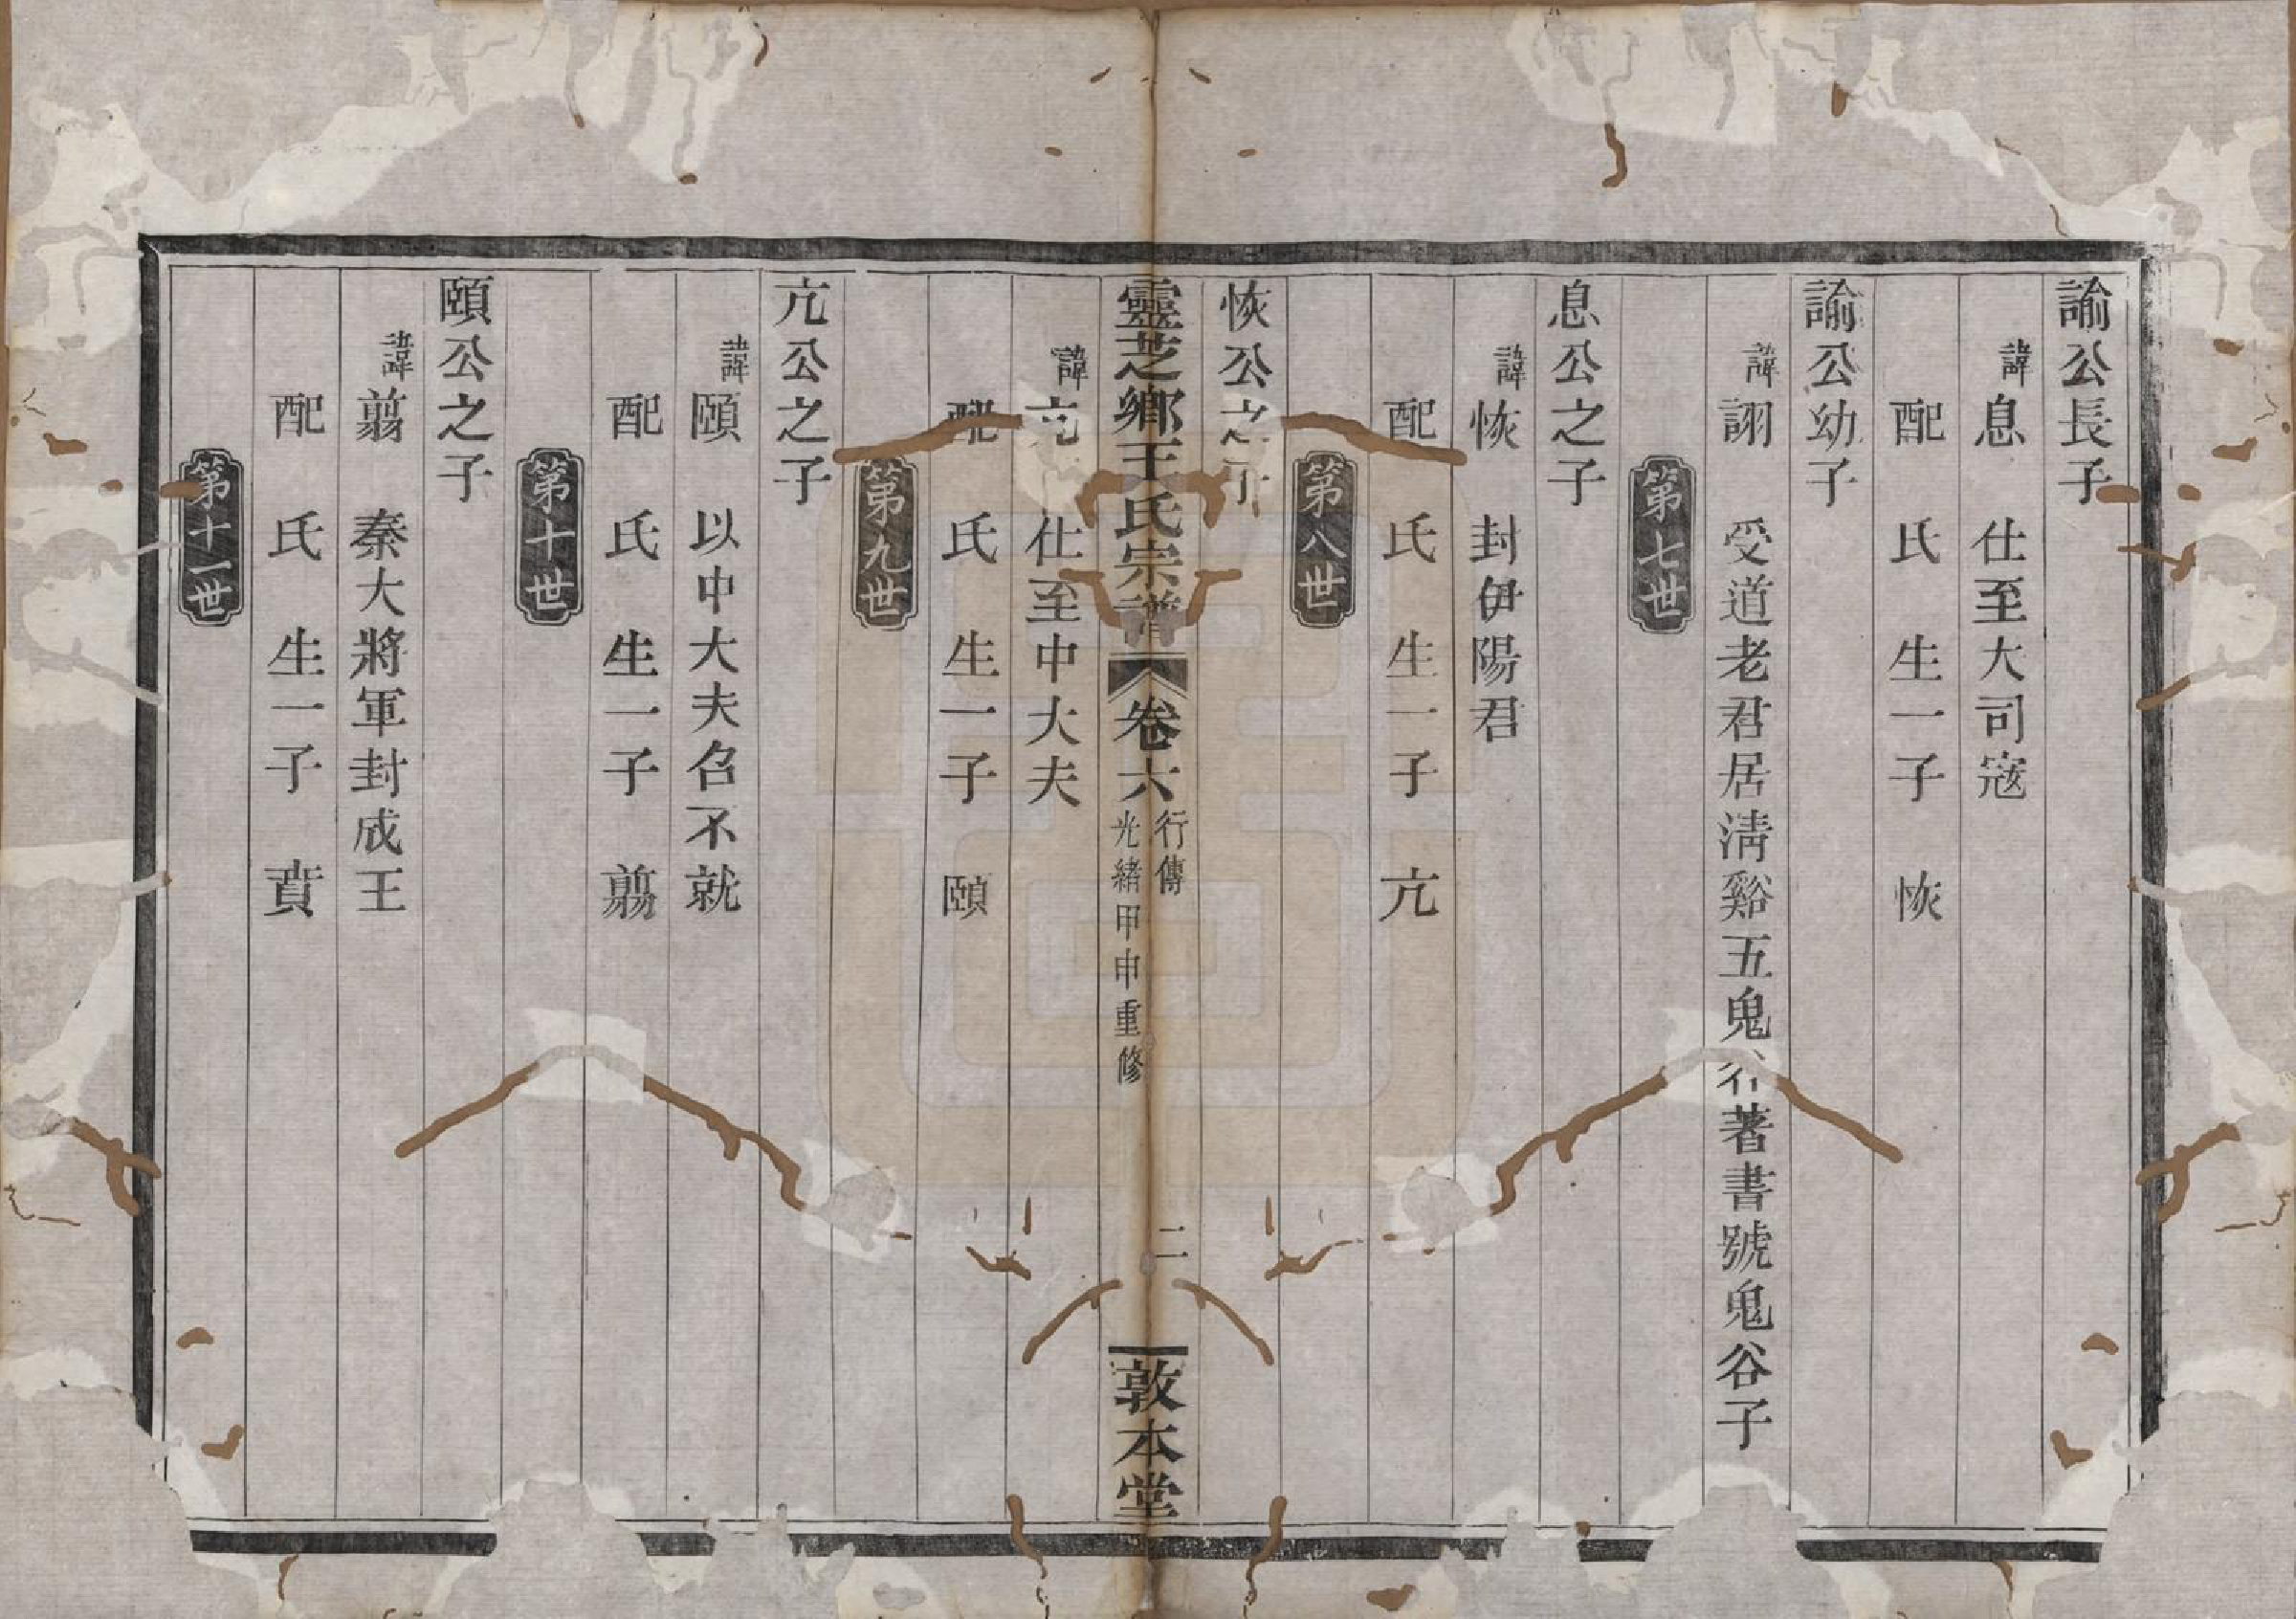 諭公長子
諱息　仕至大司寇
配　氏　生一子　恢
諭公幼子
諱詡　受道老君居淸谿五鬼　著書號鬼谷子
第七世
息公之子
諱恢　封伊陽君
配　氏　生一子　亢
第八世
恢公之子
靈芝鄉王氏宗譜　卷六　行傳　光緒甲申重修　二　敦本堂
諱亢　仕至中大夫
配　氏　生一子　頤
第九世
亢公之子
諱頤　以中大夫召不就
配　氏　生一子　翦
第十世
頤公之子
諱翦　秦大將軍封成王
配　氏　生一子　賁
第十一世